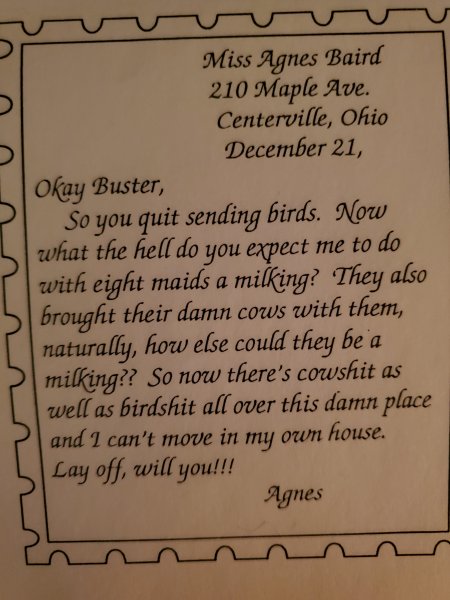 Miss Agnes Baird
210 Maple Ave.
Centerville, Ohio
December 21,
Okay Buster,
So you quit sending birds. Now
what the hell do you expect me to do
with eight maids a milking? They also
brought their damn cows with them,
naturally, how else could they be a
milking?? So now there's cowshit as
well as birdshit all over this damn place
and I can't move in my own house.
Lay off, will you!!!
Agnes